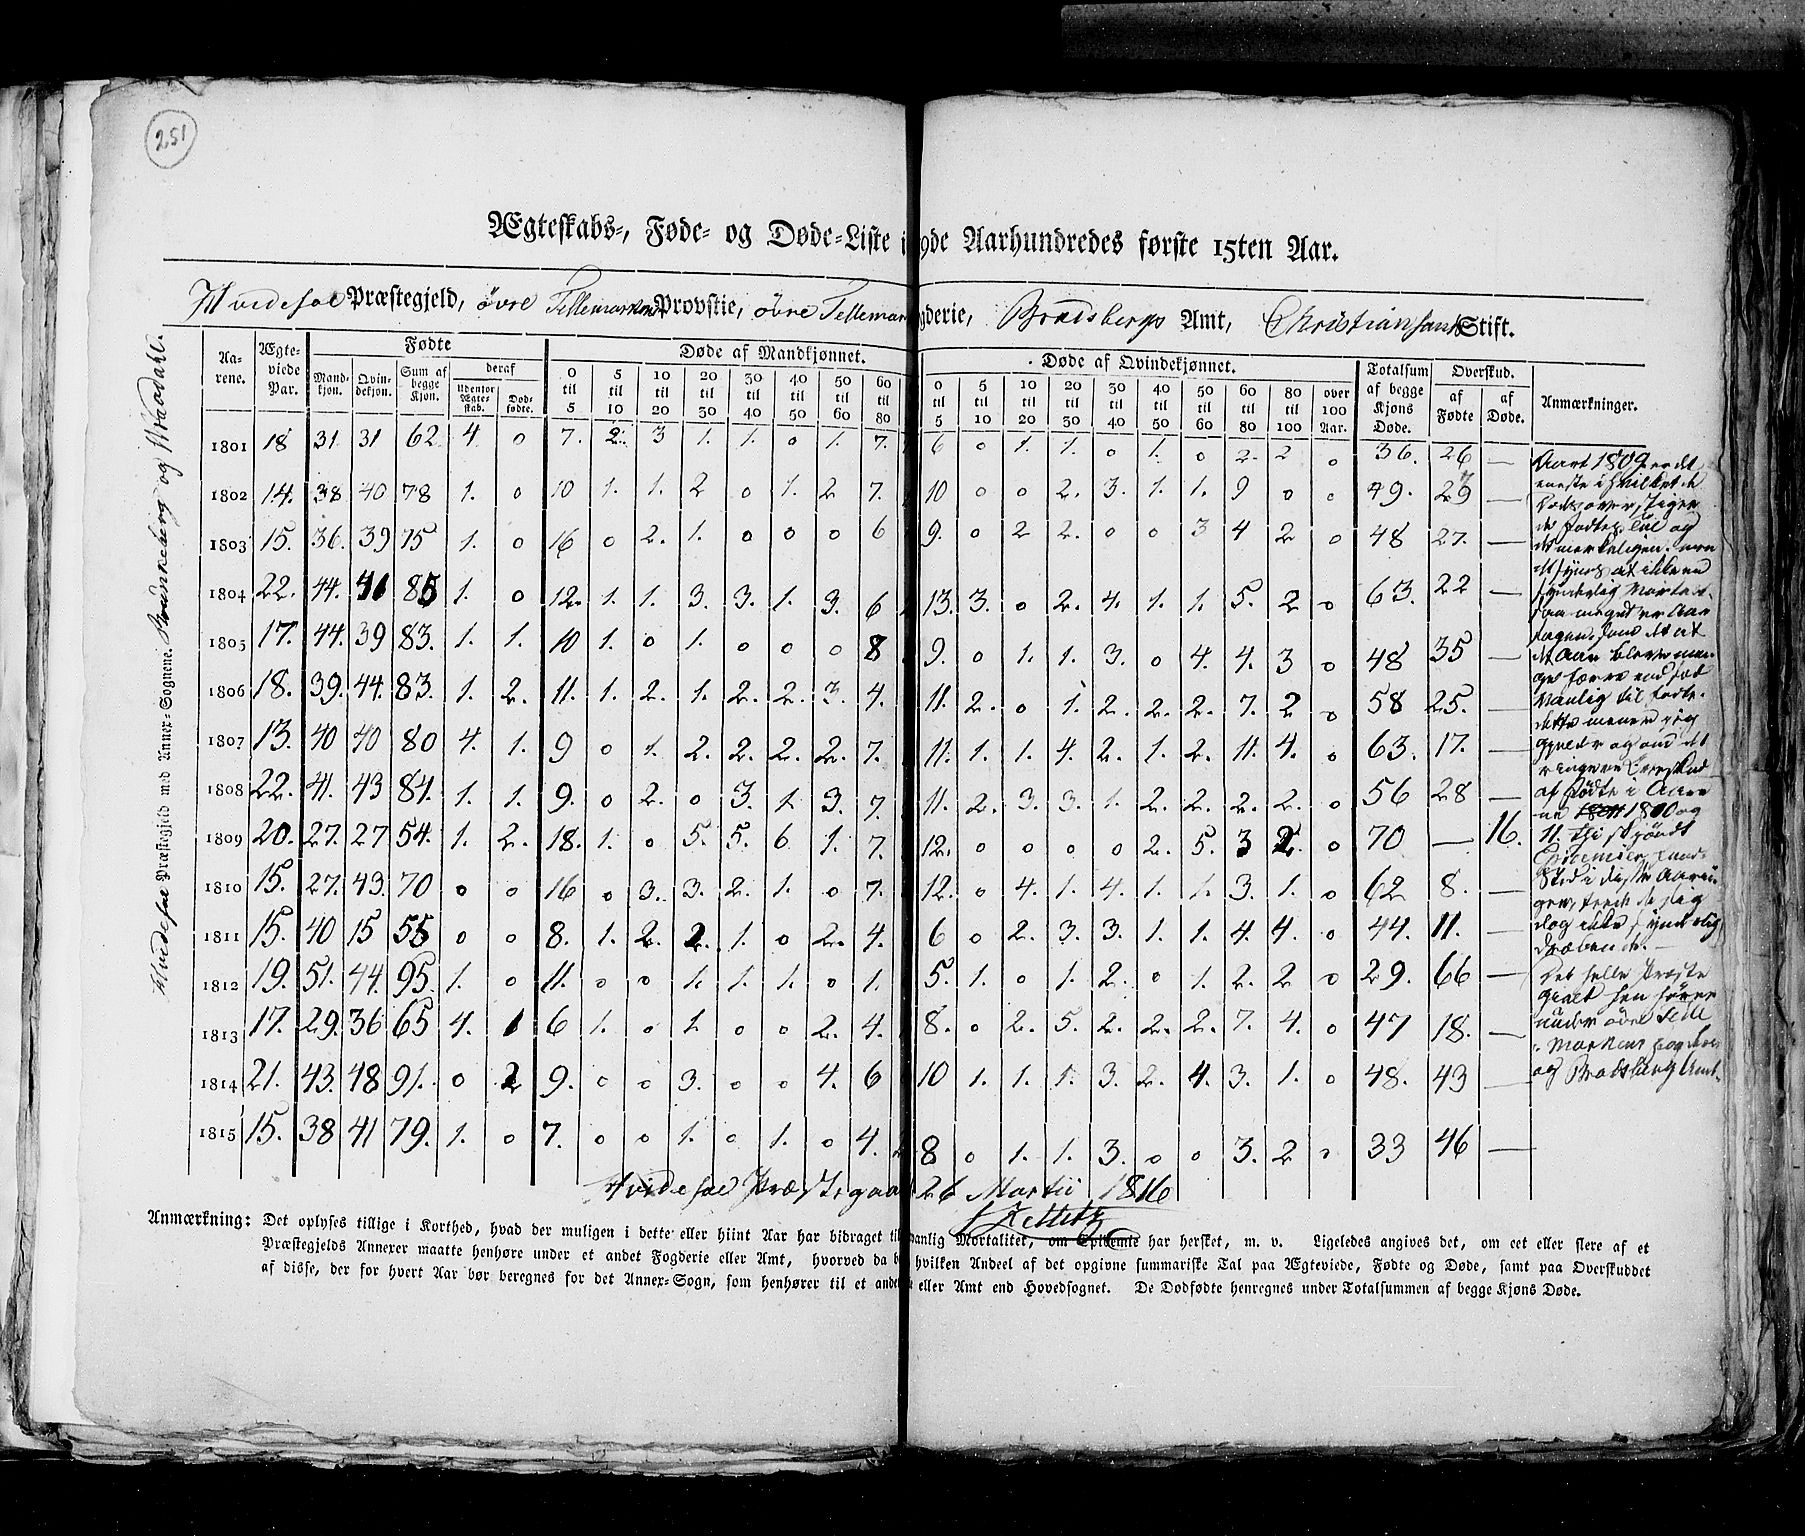 251
Ægteskabs-, Føde- og Døde-Liste i 19de Aarhundredes første 15ten Aar.
Hvidesøe Præstegjeld, øvre Tellemarken Provstie, øvre Tellemar gderie, Bradsbergs Amt, Christiansands Stift.
Hvidesøe Præstegjeld med Annex-Sognene. Brunkeberg og Wraadahl.
Aarene. Ægteviede Par. Fødte Døde af Mandkjønnet. Døde af Qvindekjønnet. Totalsum af begge Kjøns Døde. Overskud. Anmærkninger.
Mandkjøn. Qvindekjøn. Sum af begge Kjøn. deraf Udentor Ægteskab. Dødfødte. 0 til 5 5 til 10 10 til 20 20 til 30 30 til 40 40 til 50 50 til 60 60 til 80 0 til 5 5 til 10 10 til 20 20 til 30 30 til 40 40 til 50 50 til 60 60 til 80 80 til 100 over 100 Aar. af Fødte af Døde.
1801 18 31 31 62 4. 0 7. 2. 3 1. 1. 0 1. 7. 6 0 1. 1. 0 1. 0 2. 2 0 36. 26 —
1802 14. 38 40 78 1. 0 10 1. 1. 2 0 1. 2 7. 10 0 0 2. 3. 1. 1. 9 0 0 49. 29 —
1803 15. 36. 39 75 1. 0 16 0 2. 1. 0 0 0 6 9. 0 2 2. 0 0 3 4 2 0 48 27. —
1804 22. 44. 41 85 1. 0 12. 1. 1. 3. 3. 1. 3. 6 13. 3. 0 2. 4. 1. 1. 5. 2 0 63. 22 —
1805 17. 44. 39 83. 1. 1. 10 1. 0 1. 0 0 0 8 9. 0 1. 1. 3. 0 4. 4. 3 0 48 35 —
1806 18. 39. 44. 83. 1. 2. 11. 1. 2. 1. 2. 2. 3. 4. 11. 2. 0 1. 2. 2. 2. 7. 2 0 58 25. —
1807 13. 40 40 80 4. 1. 9 0 1. 2. 2. 2. 2. 7. 11. 1. 1. 4. 2. 1. 2. 11. 4. 0 63. 17. —
1808 22. 41. 43 84. 1. 1. 9. 0 2. 0 3. 1. 3. 7. 11. 2. 3. 3. 1. 2. 2. 2. 2. 0 56 28 —
1809 20. 27. 27 54. 1. 2. 18. 1. 0 5. 5. 6 1. 7. 12. 0 0 0 0 2. 5. 3 2. 0 70 — 16.
1810 15. 27. 43. 70 0 0 16 0 3. 3. 2. 1. 0 7. 12. 0 4. 1. 4. 1. 1. 3. 1. 0 62 8. —
1811 15. 40 15 55 0 0 8. 1. 2. 2. 1. 0 2. 4. 6 0 2. 3. 3. 1. 1. 4. 4. 0 44. 11. —
1812 19. 51. 44. 95. 1. 0 11. 0 0 1. 1. 1. 0 1. 5. 1. 0 1. 2. 0 1. 2. 2 0 29. 66 —
1813 17. 29. 36 65 4. 1 6 1. 0 1. 0 0 2. 4. 8. 0 2. 5. 2. 2. 2. 7. 4. 0 47 18. —
1814 21. 43. 48 91. 0 2 9. 0 0 3. 0 0 4. 6 10 1. 1. 1. 3. 2. 4. 3. 1. 0 48. 43 —
1815 15. 38 41 79. 1. 0 7. 0 0 1. 0 1. 0 4. 8 0 1. 1. 3. 0 0 3. 2 0 33 46 —
Aaret 1809 er det
eneste i hvilket de
Dødes overstiger
de fødtes Tal og
det synes at ikke en
synderlig
saa meget er Aar
sagen, som det at
det Aar bleve man
ge færre end sæd
vanlig til fødte.
dette mener jeg
gjælder og om det
ringere Overskud
af fødte i Aare
ne 1810 og
11. thi skjøndt
Epidemier fand
Sted i disse Aarin
ger, teede de sig
dog ikke synderlig
dræbende.
Det hele Præste
gield hen hører
under øvre Telle
markens fogderie
og Bradsberg Amt.
Hvidesøe Præstegaar 26 Martii 1816
Anmærkning: Det oplyses tillige i Korthed, hvad der muligen i dette eller hiint Aar har bidraget til anlig Mortalitet, om Epidemie har hersket, m. v. Ligeledes angives det, om eet eller flere af et
Præstegjelds Annexer maatte henhøre under et andet Fogderie eller Amt, hvorved da b hvilken Andeel af det opgivne summariske Tal paa Ægteviede, Fødte og Døde, samt paa Overskuddet
af disse, der for hvert Aar bør beregnes for det Annex-Sogn, som henhører til et ande eller Amt end Hovedsognet. De Dødfødte henregnes under Totalsummen af begge Kjøns Døde.